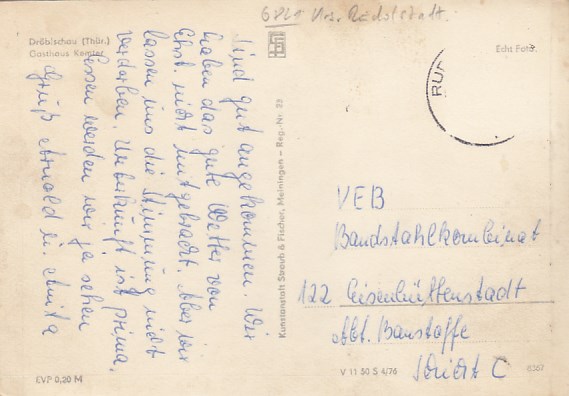 6821 Krs. Rudolstadt.
Dröbischau (Thür.)
Gasthaus Kemter
Echt Foto
RUD
Sind gut angekommen. Wir
haben das gute Wetter von
Ehst. nicht mitgebracht. Aber wir
lassen uns die Stimmung nicht
verderben. Unterkunft ist prima.
Essen werden wir ja sehen
Gruß Arnold u. Anita
Kunstanstalt Straub & Fischer, Meiningen - Reg.-Nr. 28
VEB
Bandstahlkombinat
122 Eisenhüttenstadt
Abt. Baustoffe
Schicht C
EVP 0,20 M
V 11 50 S 4/76